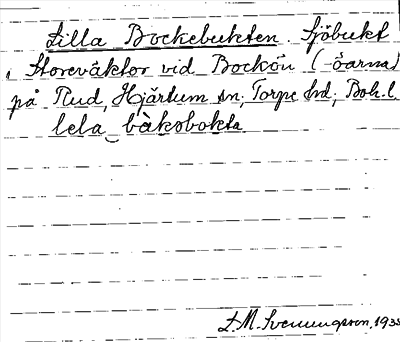 Lilla Bockebukten. Sjöbukt
i Storeväktor vid Bockön (-öarna)
på Rud, Hjärtum sn, Torpe hd, Boh.l.
lela bàkobokta
L.M. Svenungsson, 1935